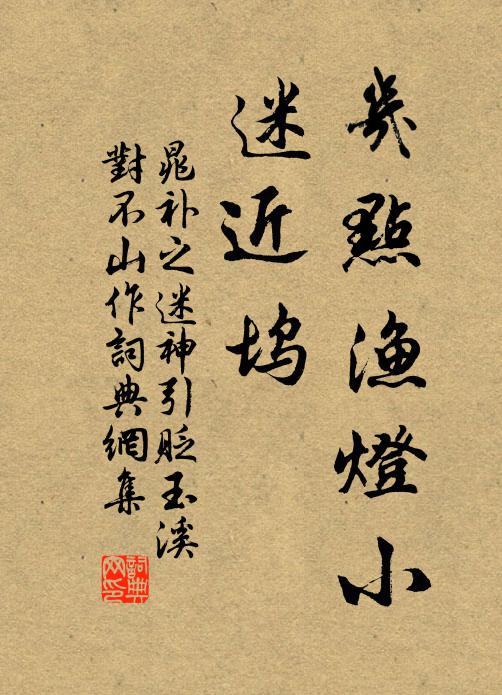 幾點漁燈小
迷近塢
晁補之迷神引貶玉溪
對不山作詞典網集
詞典
网印